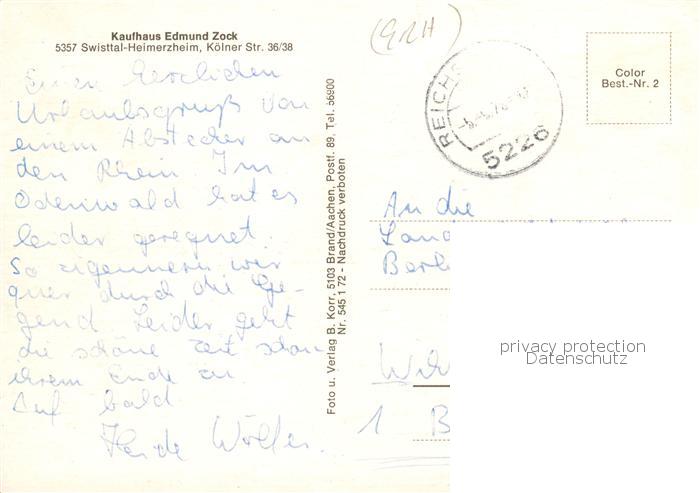 Kaufhaus Edmund Zock
5357 Swisttal-Heimerzheim, Kölner Str. 36/38
Einen herzlichen
Urlaubsgruß von
einem Abstecher an
den Rhein Im
Odenwald hat es
leider geregnet.
So zigeunern wir
quer durch die Ge-
gend. Leider geht
die schöne Zeit schon
ihrem Ende zu.
Auf bald
Heide Wölfer.
Foto u. Verlag B. Korr, 5103 Brand/Aachen, Postf. 89, Tel. 56900
Nr. 545 1 72 - Nachdruck verboten
(GRH)
REICHS
5226
Color
Best.-Nr. 2
An die
Land
Berl
1 B
privacy protection
Datenschutz